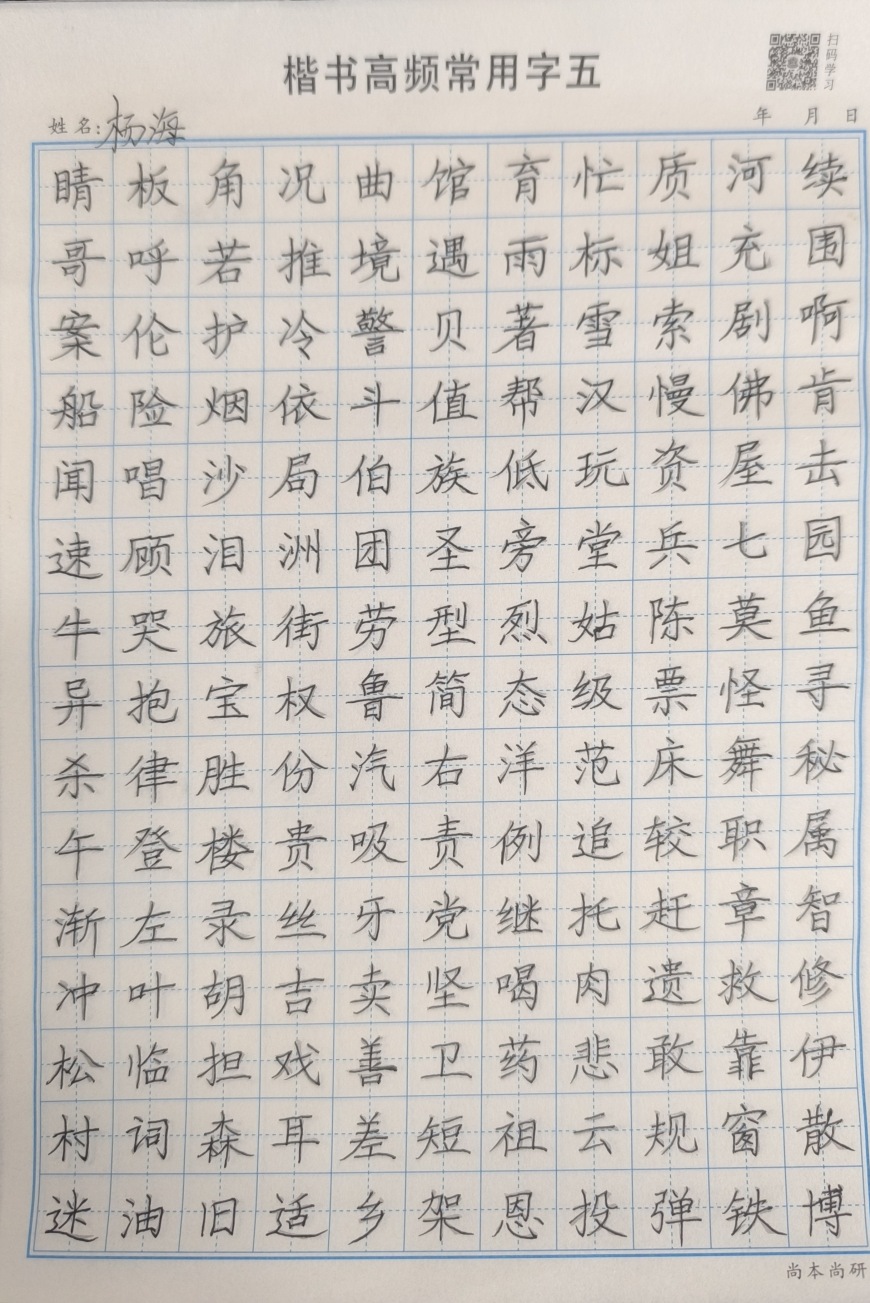 楷书高频常用字五
扫码学习
姓名:杨海 年 月 日
睛板角况曲馆育忙质河续
哥呼若推境遇雨标姐充围
案伦护冷警贝著雪索剧啊
船险烟依斗值帮汉慢佛肯
闻唱沙局伯族低玩资屋击
速顾泪洲团圣旁堂兵七园
牛哭旅街劳型烈姑陈莫鱼
异抱宝权鲁简态级票怪寻
杀律胜份汽右洋范床舞秘
午登楼贵吸责例追较职属
渐左录丝牙党继托赶章智
冲叶胡吉卖坚喝肉遗救修
松临担戏善卫药悲敢靠伊
村词森耳差短祖云规窗散
迷油旧适乡架恩投弹铁博
尚本尚研